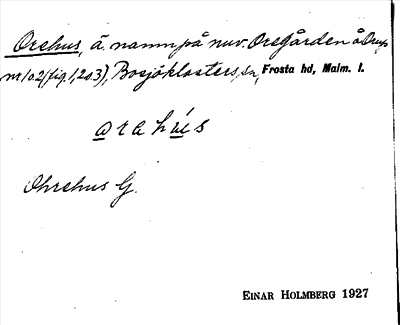 Orehus, ä. namn på nuv. Oregården å Orup
nr 1 o. 2 (fig. 1, 2 o. 3), Bosjöklosters sn, Frosta hd, Malm. l.
arahús
Ohrehus G.
EINAR HOLMBERG 1927